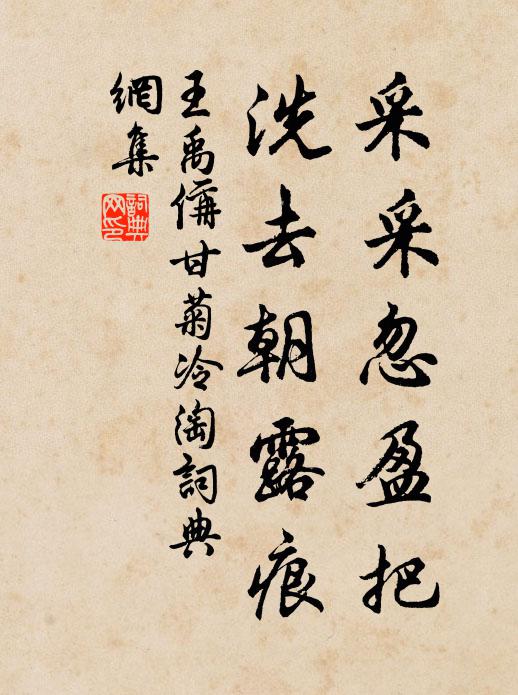 采采忽盈把
洗去朝露痕
王禹偁甘菊冷淘詞典
網集
詞典
网印